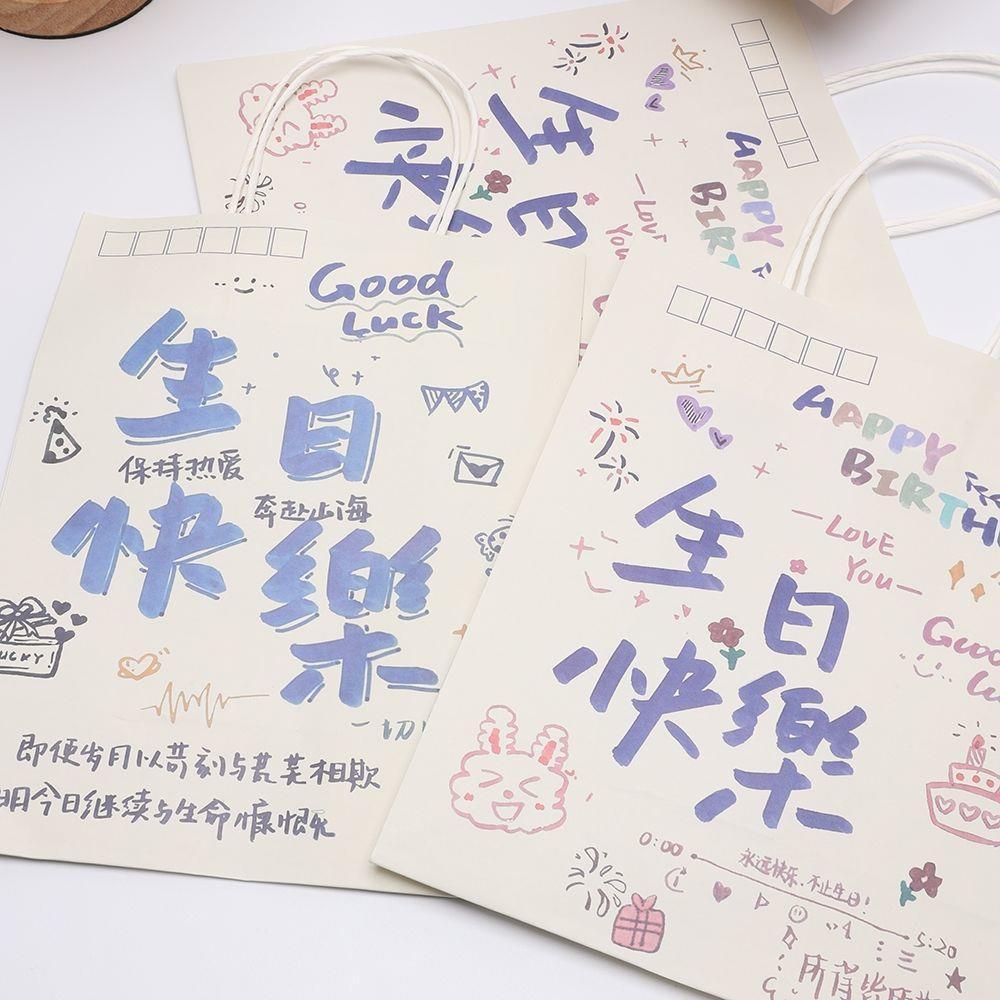 生日
快
HAPPY
BIRT
—LOVE
YOU
Good
Luck
生日
保持热爱
奔赴山海
快樂
LUCKY!
一切
即便岁月以苛刻与荒芜相欺
明今日继续与生命慷慨
HAPPY
BIRTH
—LOVE
You—
生日
快樂
Good
Lu
0:00
永远快乐,不止生日!
5:20